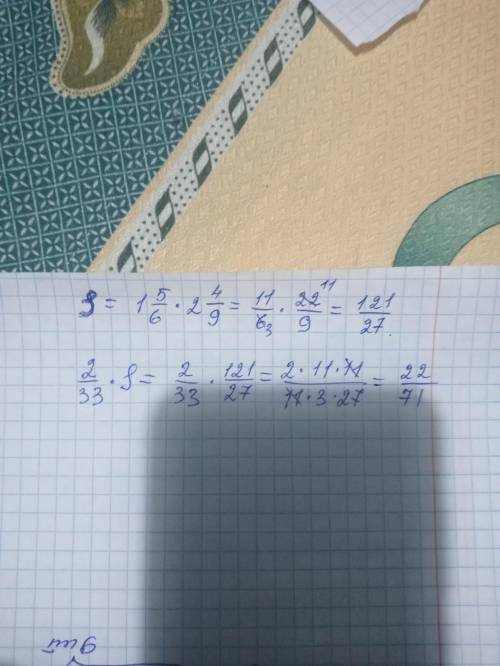 S = 1 5/6 · 2 4/9 = 11/6 3 · 22 11/9 = 121/27.
2/33 · S = 2/33 · 121/27 = 2 · 11 · 11/11 · 3 · 27 = 22/71